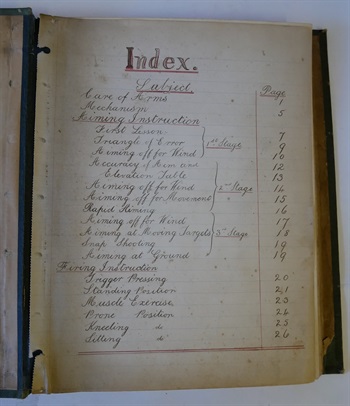 Index.
Subject. Page
Care of Arms " 1
Mechanism 5
Aiming Instruction
First Lesson 7
Triangle of Error 1st Stage 9
Aiming off for Wind 10
Accuracy of Aim and 12
Elevation Table 13
Aiming off for Wind 2nd Stage 14
Aiming off for Movement " 15
Rapid Aiming 16
Aiming off for Wind 17
Aiming at Moving Targets 3rd Stage 18
Snap Shooting 19
Aiming at Ground 19
Firing Instruction
Trigger Pressing 20
Standing Position 21
Muscle Exercise 23
Prone Position 24
Kneeling do 25
Sitting do 26